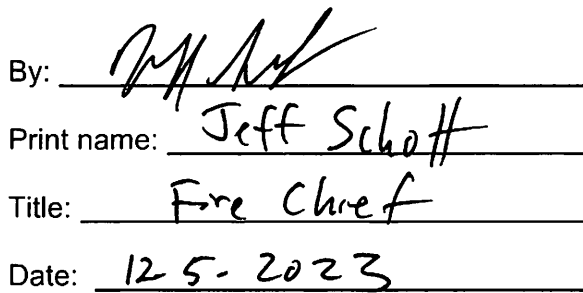 By:
Print name: Jeff Schott
Title: Fire Chief
Date: 12-5-2023